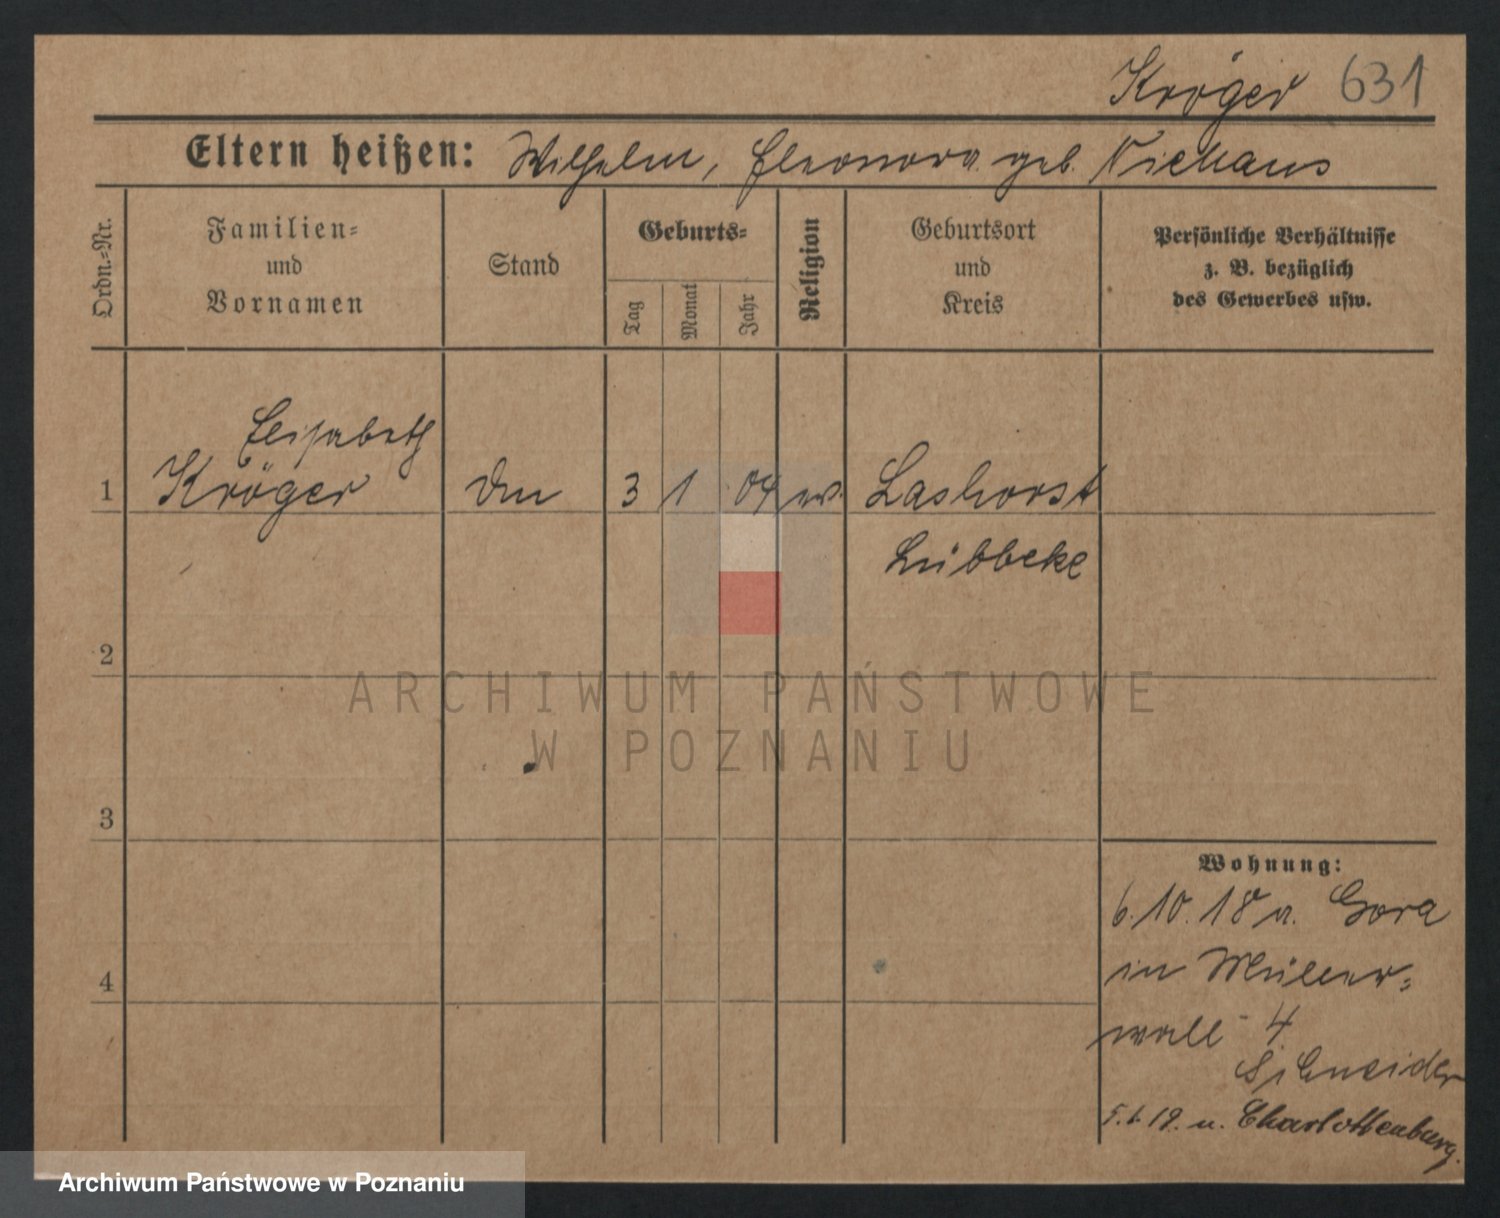 Kröger 631
Eltern heißen: Wilhelm, Eleonora geb. Niehaus
Ordn.-Nr.
Familien-
und
Vornamen
Stand
Geburts-
Tag
Monat
Jahr
Religion
Geburtsort
und
Kreis
Persönliche Verhältnisse
z. B. bezüglich
des Gewerbes usw.
Elisabeth
1 Kröger 3 1 04 Lashorst
Lübbeke
2
ARCHIWUM PAŃSTWOWE
W POZNANIU
3
Wohnung:
6.10.18 a. Gora
in Müller-
4
wall 4
Schneider
5.6.19. n. Charlottenburg.
Archiwum Państwowe w Poznaniu